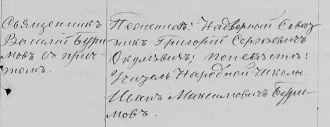 Священникъ
Василій Бурри-
мовъ съ прич-
томъ.
Поженихѣ: Надворный Совѣт-
никъ Григорій Сергѣевичъ
Окуловичъ; по невѣстѣ:
Учитель Народной Школы
Иванъ Максимовичъ Бурри-
мовъ.